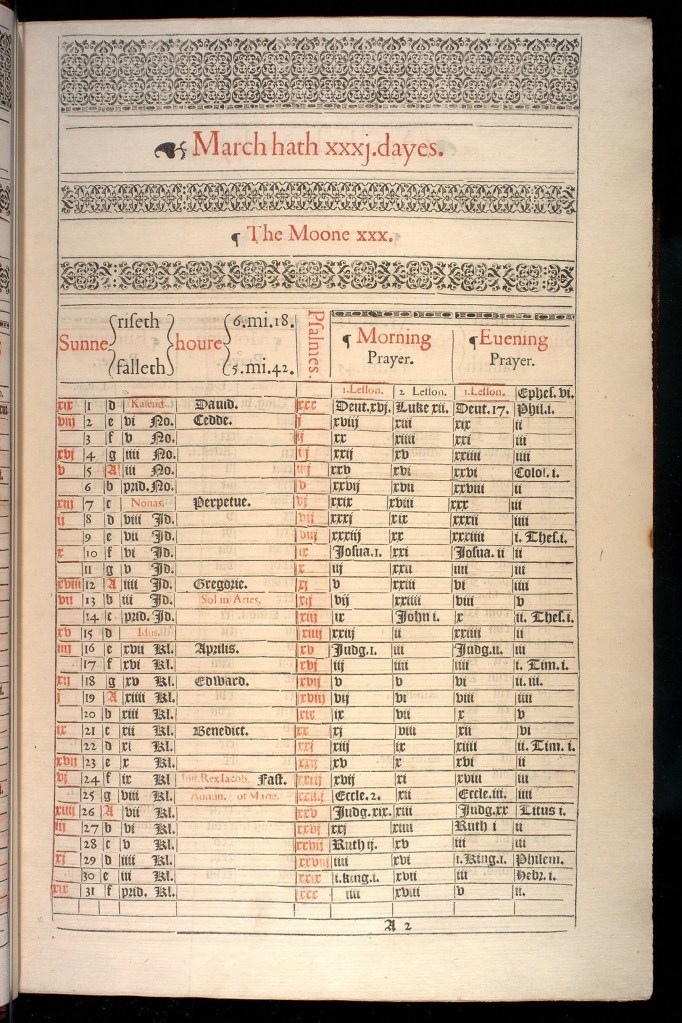 March hath xxxj.dayes.
¶ The Moone xxx.
Sunne riseth falleth houre 6.mi.18. 5.mi.42. Psalmes. ¶ Morning Prayer. ¶ Euening Prayer.
1.Lesson. 2 Lesson. 1.Lesson. Ephes. vi.
xix 1 d Kalend. Dauid. xxx Deut.xvj. Luke xii. Deut. 17. Phil.i.
viij 2 e vi No. Cedde. j xviij xiii xix ii
3 f v No. ij xx xiiii xxi iii
xvj 4 g iiii No. iij xxij xv xxiiii iiii
v 5 A iii No. iiij xxv xvi xxvi Colos. i.
6 b prid.No. v xxvij xvii xxviii ii
xiij 7 c Nonas. Perpetue. vj xxix xviii xxx iii
ij 8 d viii Id. vij xxxj xix xxxii iiii
9 e vii Id. viij xxxiij xx xxxiiii i. Thes.i.
x 10 f vi Id. ix Josua.1. xxi Josua. ii ii
11 g v Id. x iij xxii iiii iii
xviii 12 A iiii Id. Gregorie. xj v xxiii vi iiii
vii 13 b iii Id. Sol in Aries. xij vij xxiiii viii v
14 c prid. Id. xiii ix John i. x ii. Thes.i.
xv 15 d Idus. xiiij xxiij ii xxiiii ii
iiii 16 e xvii Kl. Aprilis. xv Judg.1. iii Judg.ii. iii
17 f xvi Kl. xvj iij iiii iiii i. Tim. i.
xij 18 g xv Kl. Edward. xvij v v vi ii. iii.
j 19 A xiiii Kl. xviij vij vi viii iiii
20 b xiii Kl. xix ix vii x v
ix 21 c xii Kl. Benedict. xx xj viii xii vi
22 d xi Kl. xxj xiij ix xiiii ii. Tim. i.
xvij 23 e x Kl. xxij xv x xvi ii
vj 24 f ix Kl. Init.Rex Iacob. Fast. xxiij xvij xi xviii iii
25 g viii Kl. Annun. of Marie. xxiiij Eccle. 2. xii Eccle.iii. iiii
xiiij 26 A vii Kl. xxv Judg.xix. xiii Judg.xx Titus i.
iij 27 b vi Kl. xxvj xxj xiiii Ruth i ii
28 c v Kl. xxvij Ruth ij. xv iii iii
xj 29 d iiii Kl. xxviij iiii xvi 1.King.1. Philem.
30 e iii Kl. xxix 1.King.1. xvii iii Hebr. i.
xix 31 f prid. Kl. xxx iiii xviii v ii.
A 2